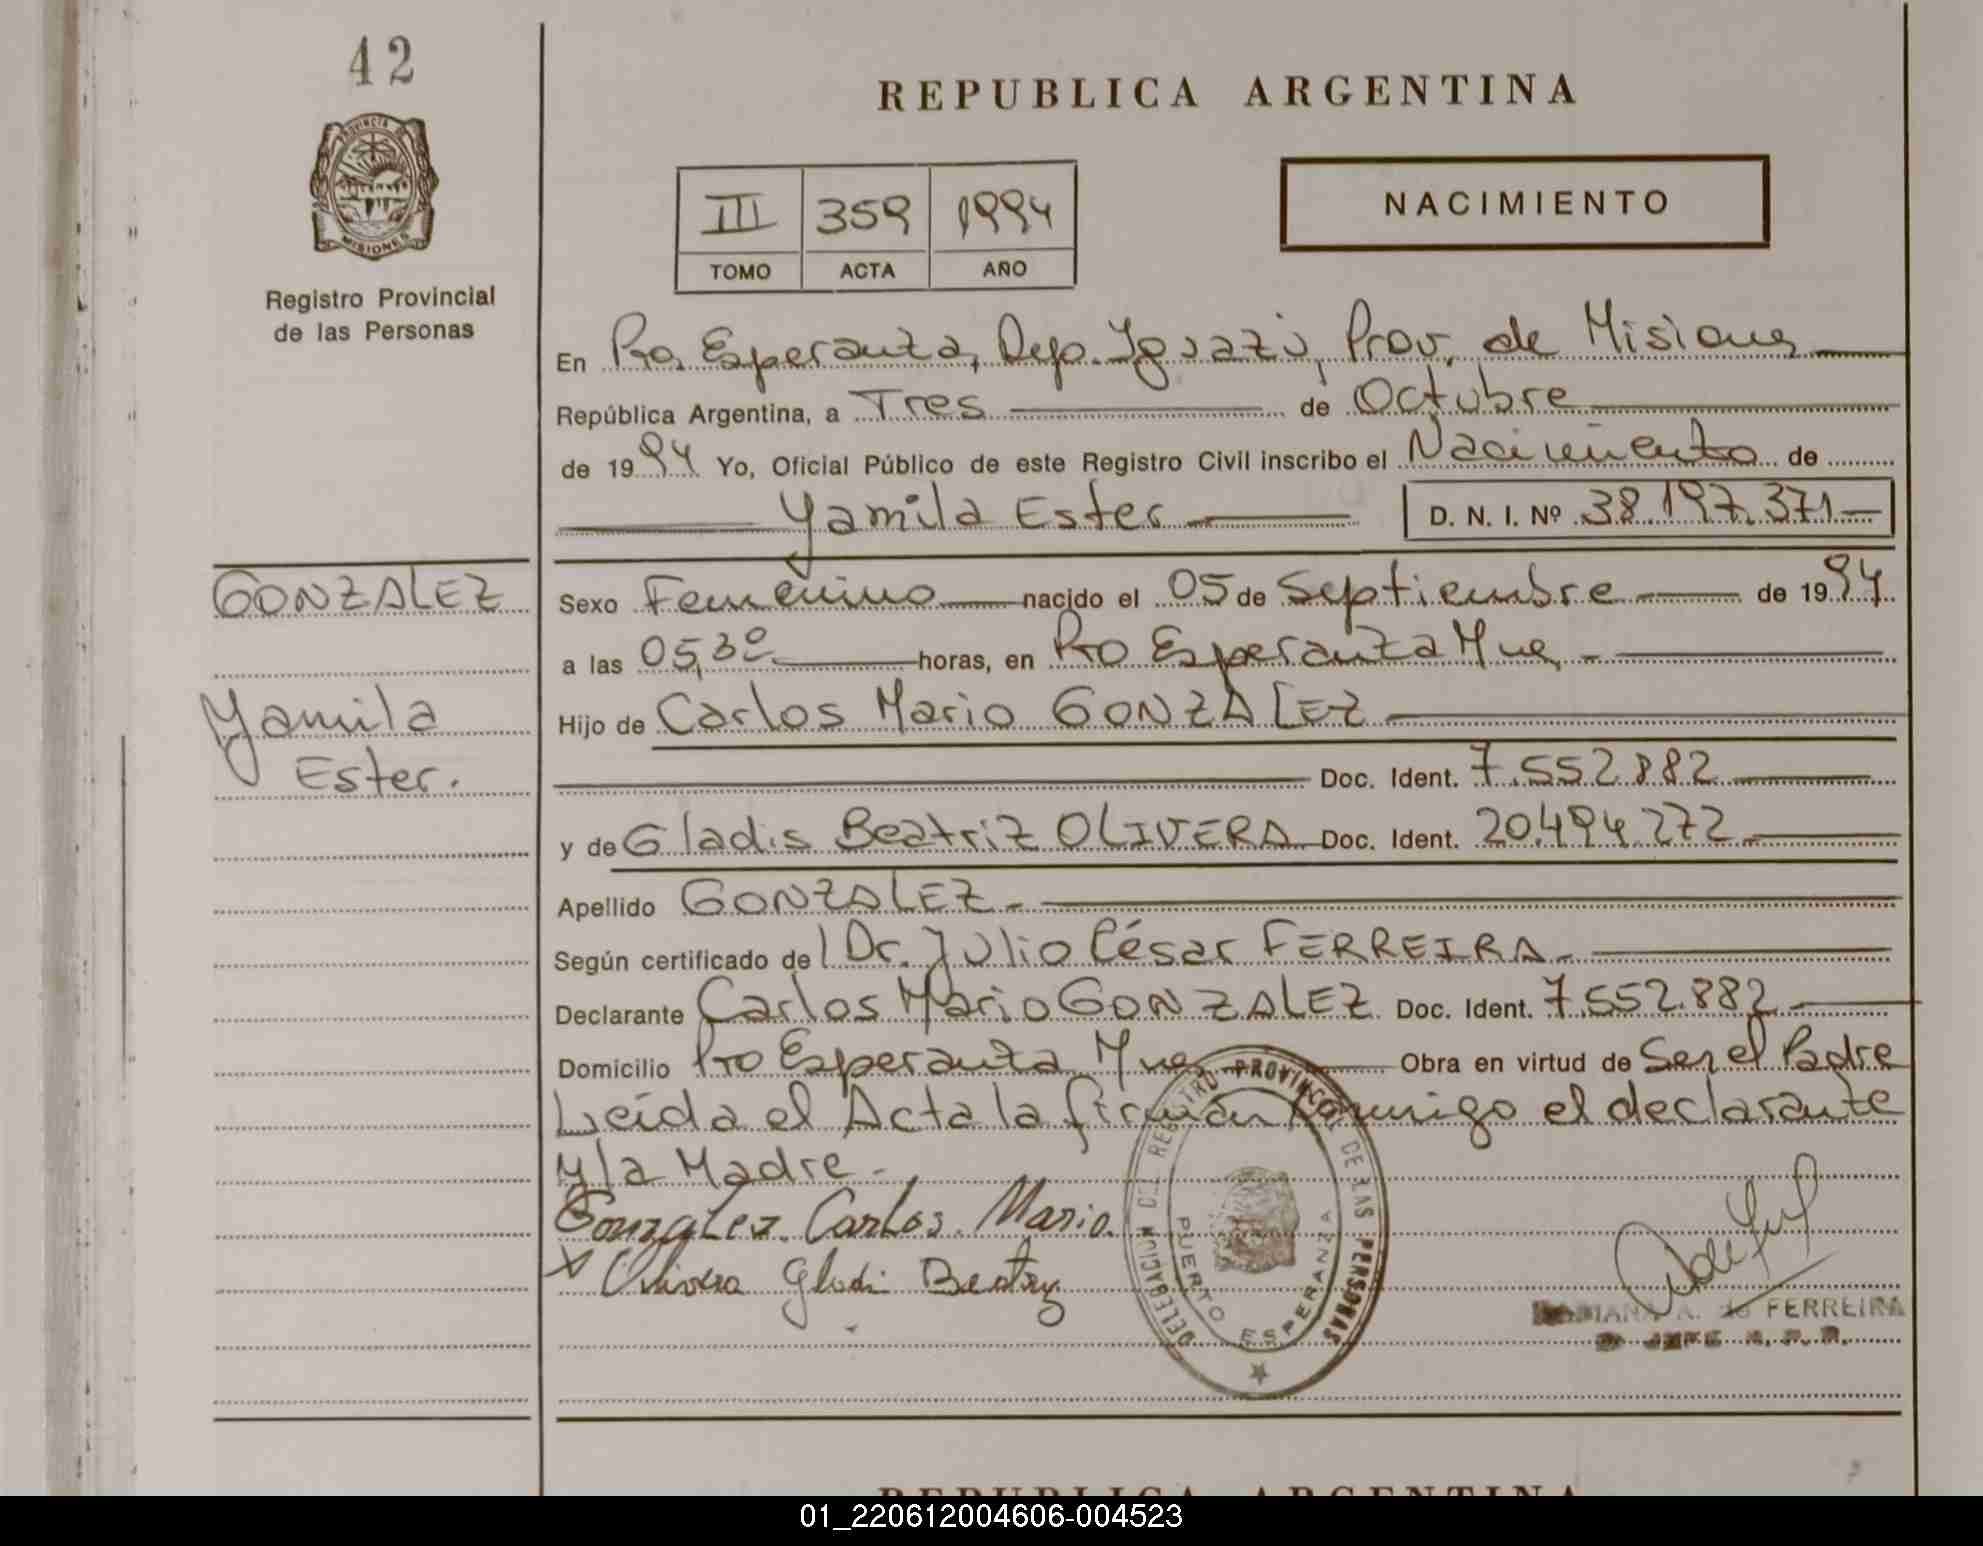 42
REPUBLICA ARGENTINA
PROVINCIA DE
MISIONES
III 359 1994
TOMO ACTA AÑO
NACIMIENTO
Registro Provincial
de las Personas
En Pto. Esperanza, Dep. Iguazú, Prov. de Misiones
República Argentina, a Tres de Octubre
de 1994 Yo, Oficial Público de este Registro Civil inscribo el Nacimiento de
Yamila Ester D. N. I. Nº 38.197.371
GONZALEZ
Yamila
Ester.
Sexo Femenino nacido el 05 de Septiembre de 1994.
a las 05,30 horas, en Pto Esperanza Mnes
Hijo de Carlos Mario GONZALEZ
Doc. Ident. 7.552.882
y de Gladis Beatriz OLIVERA Doc. Ident. 20.494.272
Apellido GONZALEZ.-
Según certificado del Dr. Julio César FERREIRA.-
Declarante Carlos Mario GONZALEZ Doc. Ident. 7.552.882
Domicilio Pto Esperanza Mnes Obra en virtud de Ser el Padre
Leída el Acta la firman conmigo el declarante
y la Madre.-
Gonzalez. Carlos. Mario.
x Olivera Gladi Beatriz
DELEGACION DEL REGISTRO PROVINCIAL DE LAS PERSONAS
PUERTO ESPERANZA
A. de FERREIRA
JEFE R. P. P.
REPUBLICA ARGENTINA
01_220612004606-004523